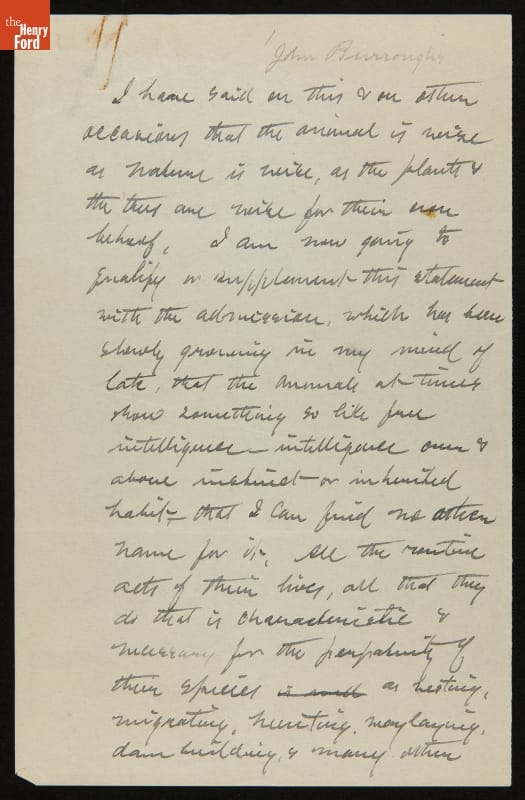 the
Henry
Ford
John Burroughs
I have said on this & on other
occasions that the animal is wise
as nature is wise, as the plants &
the trees are wise for their own
behoof, I am now going to
qualify or supplement this statement
with the admission, which has been
slowly growing in my mind of
late, that the animals at times
show something so like free
intelligence – intelligence over &
above instinct or inherited
habit – that I can find no other
name for it. All the routine
acts of their lives, all that they
do that is characteristic &
necessary for the perpetuity of
their species as nesting,
migrating, hunting, waylaying,
dam building, & many other